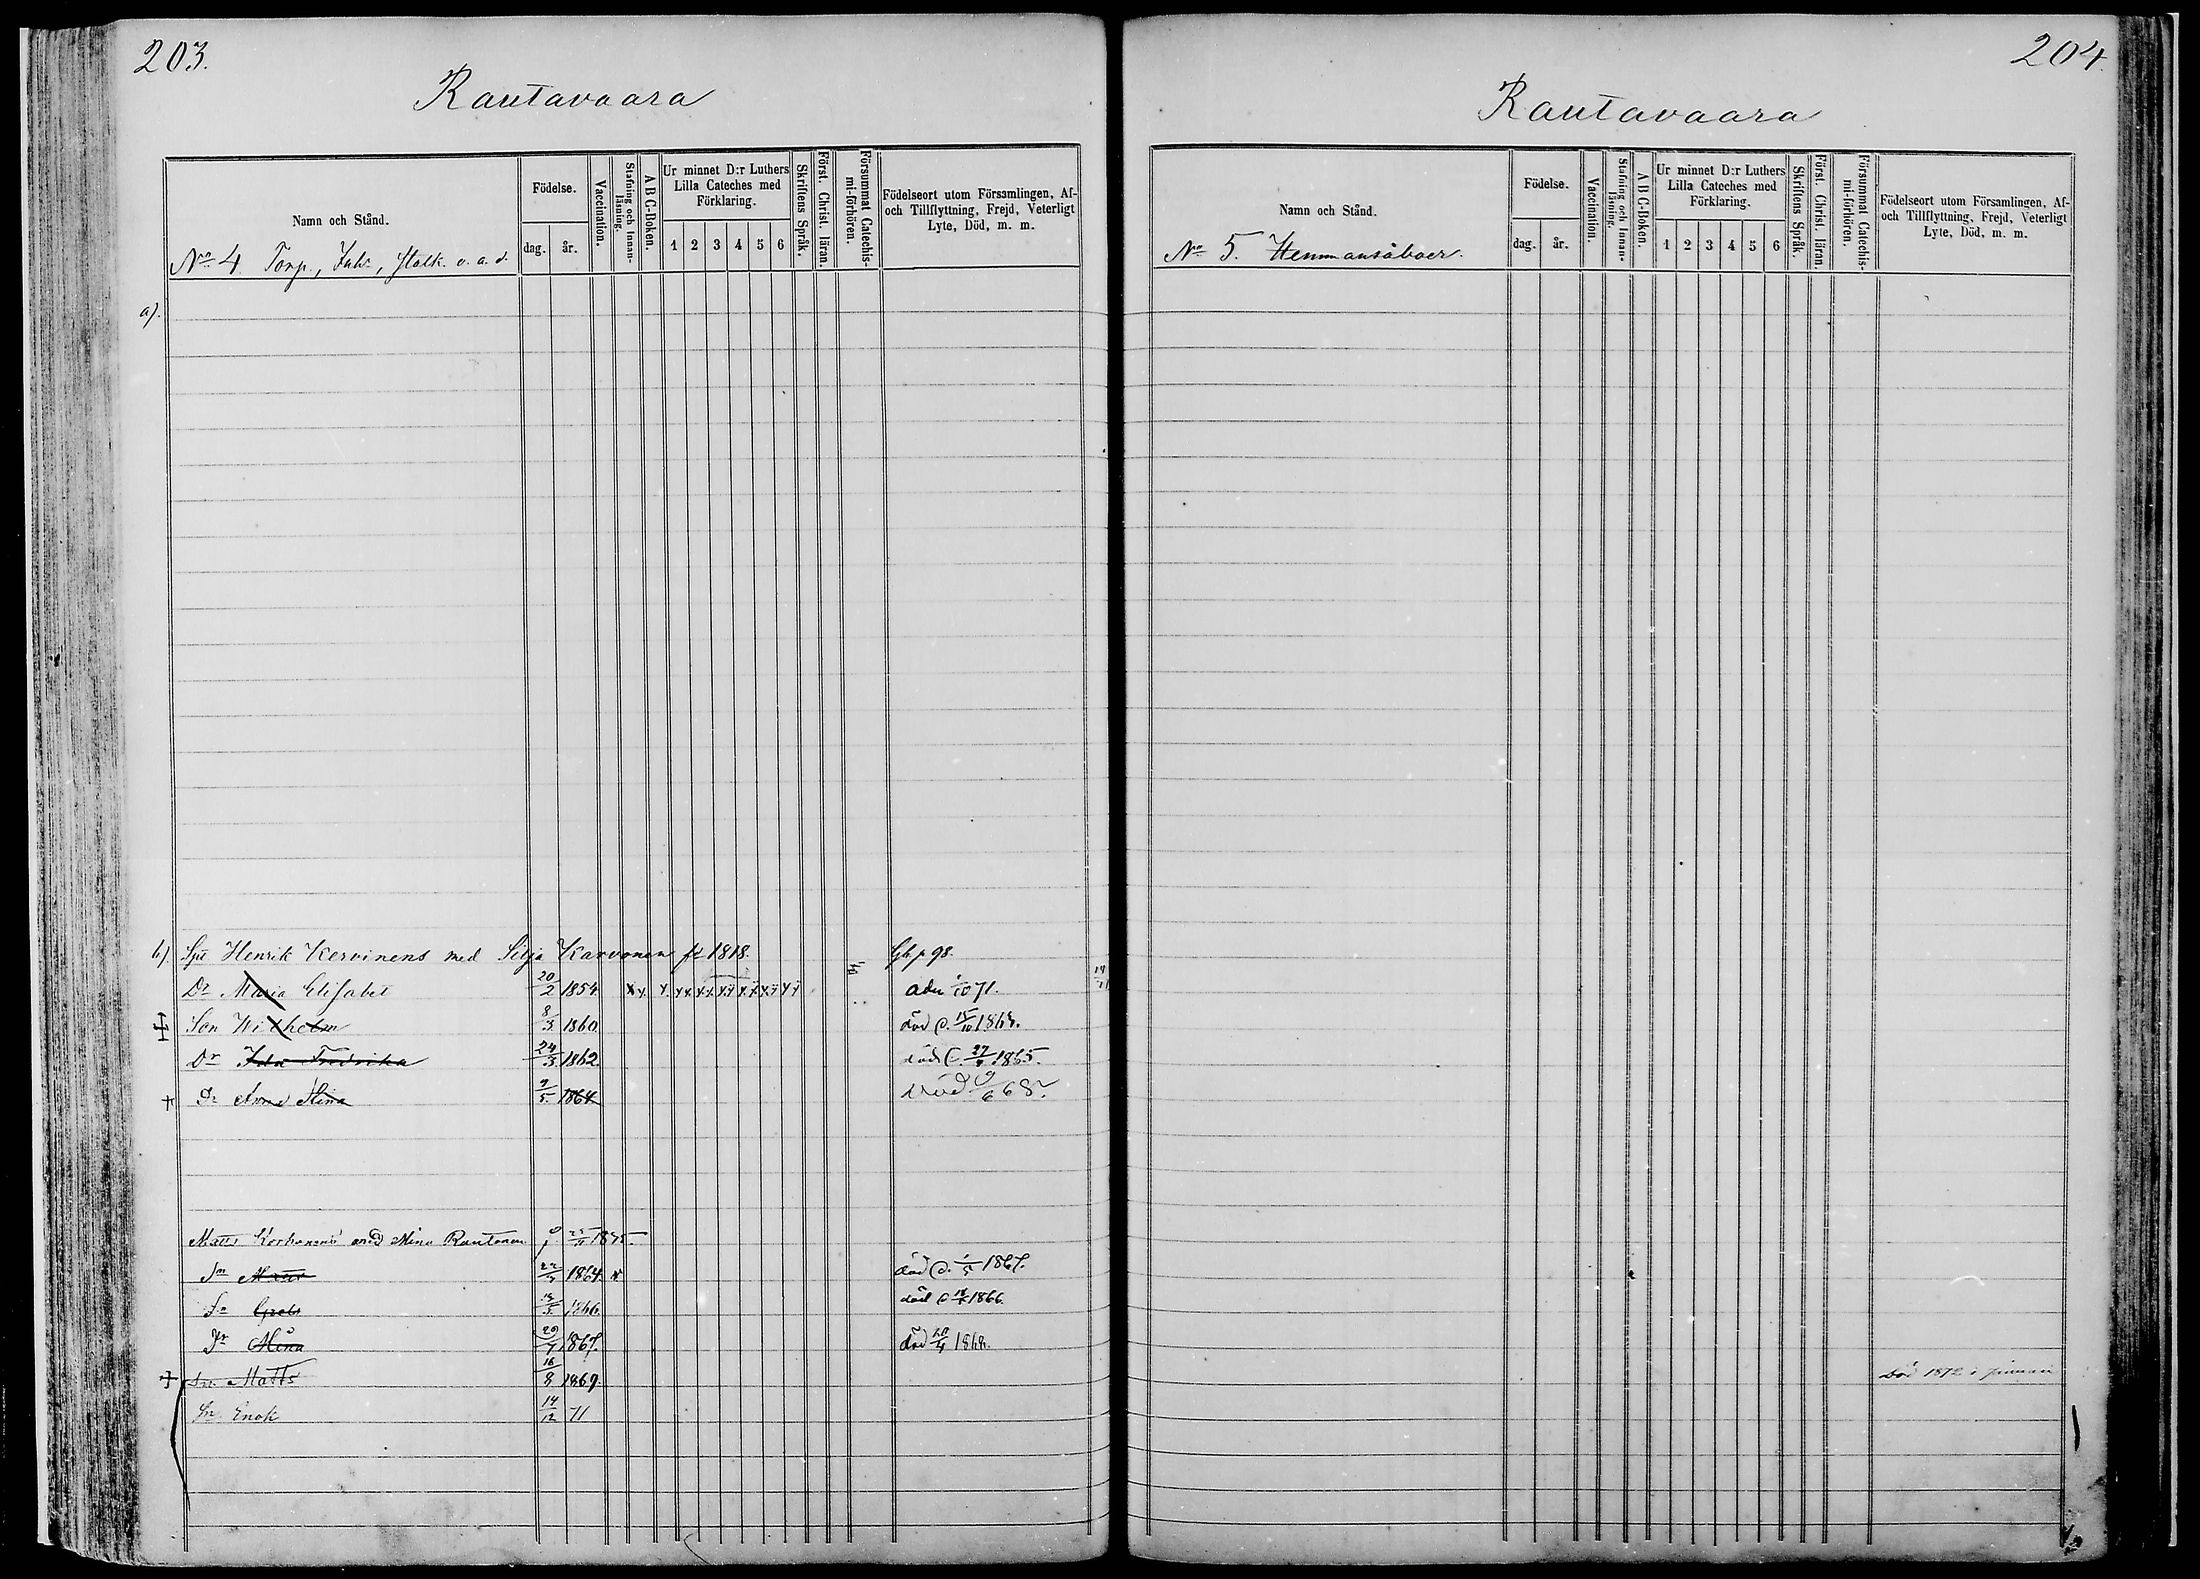 203.
Rautavaara
Namn och Stånd.
Födelse.
dag.
år.
Vaccination.
Stafning och Innan-läsning.
A B C-Boken.
Ur minnet D:r Luthers
Lilla Cateches med
Förklaring.
1 2 3 4 5 6
Skriftens Språk.
Först. Christ. läran.
Försummat Catechis-mi-förhören.
Födelseort utom Församlingen, Af-
och Tillflyttning, Frejd, Veterligt
Lyte, Död, m. m.
No 4. Torp., Inh., Stolk. o. a. d.
a).
b). Henrik Kervinens med Silja Karvonen fz 1818. p 98.
Dr Maria Elisabet 20/2 1854 x x x x x x x x x x x x 71.
Son Wilhelm 8/3 1860. död 15/10 1868.
Dr Ida Fredrika 24/3 1862 död 1865.
Dr Anna Stina 9/5. 1864 död 9/6 68.
Matts Korhonens med Mina Rautonen
Sn Matts 1864 död 1867.
1866. död 1866.
Dr Mina 29/7 1867. död 1868.
Sn Matts 16/8 1869.
Sn Enok 14/12 71
204.
Rautavaara
Namn och Stånd.
Födelse.
dag.
år.
Vaccination.
Stafning och Innan-läsning.
A B C-Boken.
Ur minnet D:r Luthers
Lilla Cateches med
Förklaring.
1 2 3 4 5 6
Skriftens Språk.
Först. Christ. läran.
Försummat Catechis-mi-förhören.
Födelseort utom Församlingen, Af-
och Tillflyttning, Frejd, Veterligt
Lyte, Död, m. m.
No 5. Hemmansåboer.
Död 1872 i